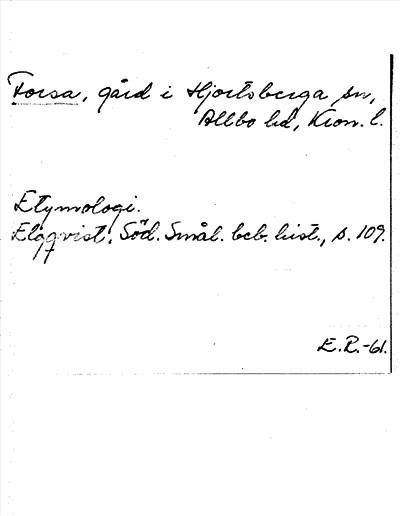 Forsa, gård i Hjortsberga sn,
Allbo hd, Kron. l.
Etymologi.
Elqvist, Söd. Smål. beb. hist., s. 109.
E.R.-61.